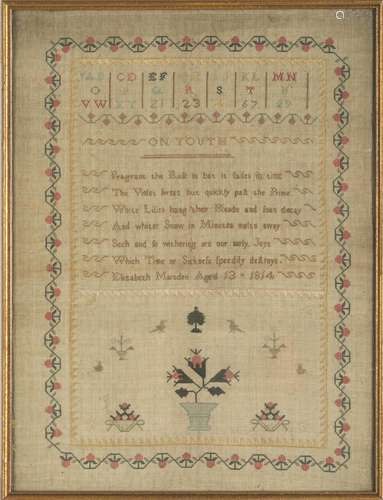 CD EF KL MN
O R S T
VW XY 21 23 67 89
ON YOUTH
Fragrant the Rose is but it fades in time
The Violet sweet but quickly past the Prime
White Lilies hang their Heads and soon decay
And whiter Snow in Minutes melts away
Such and so withering are our early Joys
Which Time or Sickness speedily destroys
Elizabeth Marsden Aged 13 1814